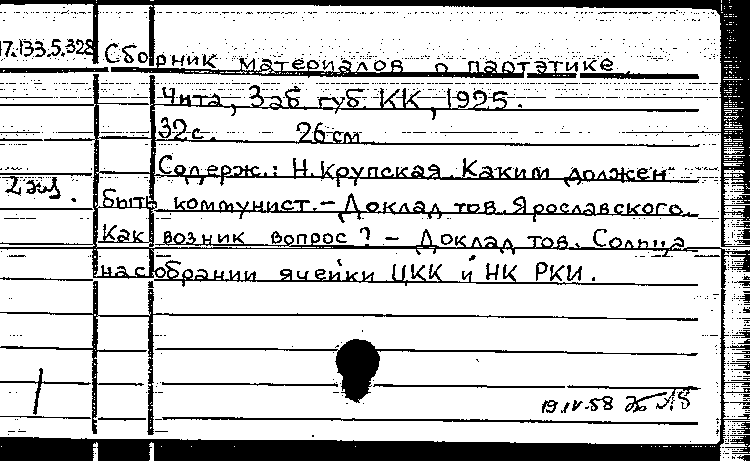 17.133.5.328 Сборник материалов о партэтике
Чита, Заб. губ. КК, 1925.
32 с. 26 см
Содерж.: Н. Крупская. Каким должен
2 экз. быть коммунист. – Доклад тов. Ярославского.
Как возник вопрос? – Доклад тов. Сольца
на собрании ячейки ЦКК и НК РКИ.
19.IV.58